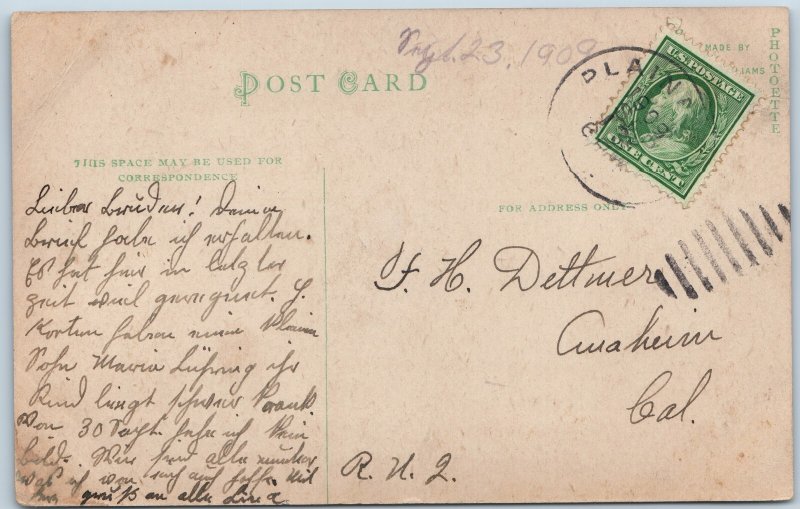 Sept. 23, 1909
POST CARD
MADE BY
PHOTOETTE
U.S. POSTAGE
ONE CENT
PLAINVIEW
THIS SPACE MAY BE USED FOR
CORRESPONDENCE
FOR ADDRESS ONLY
Lieber Bruder! Deinen
Brief habe ich erhalten.
Es hat hier in letzter
Zeit viel geregnet. H.
Korten haben einen kleinen
Sohn Maria Lühring ihr
Kind liegt schwer krank
Von 30 habe ich kein
Bild. Wir sind alle munter
was ich von euch auch hoffe Mit
gruß an alle Lina
F. H. Dettmer
Anaheim
Cal.
R. N. 2.